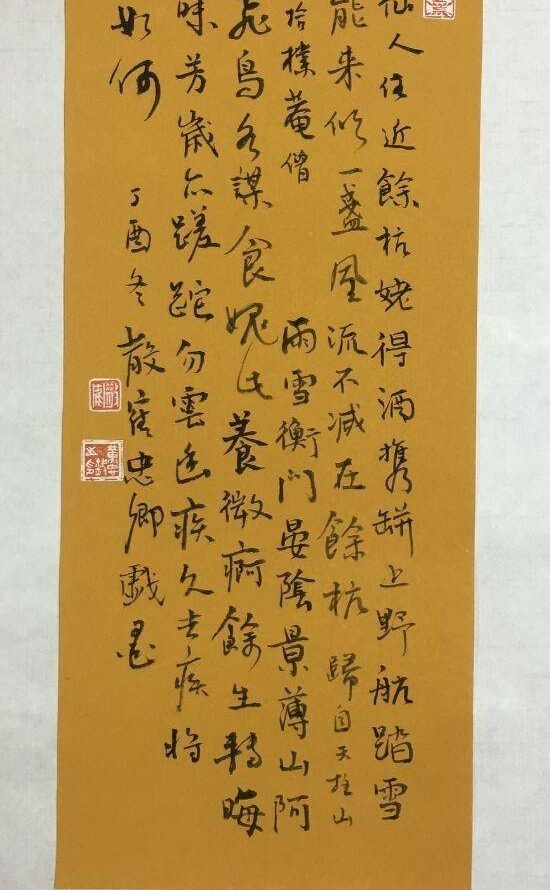 仙人住近餘杭姥得酒攜缾上野航踏雪
能来似一盏風流不减在餘杭歸自天柱山
拾樸菴僧 雨雪衡门晏陰景薄山阿
飛鳥各謀食媿此養微痾餘生轉晦
昧芳歲亦蹉跎勿雲迷疾久去疾将
如何 丁酉冬散 忠卿戲墨